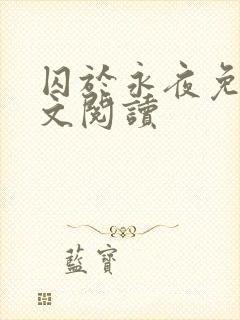 囚於永夜免
文閱讀
藍寶